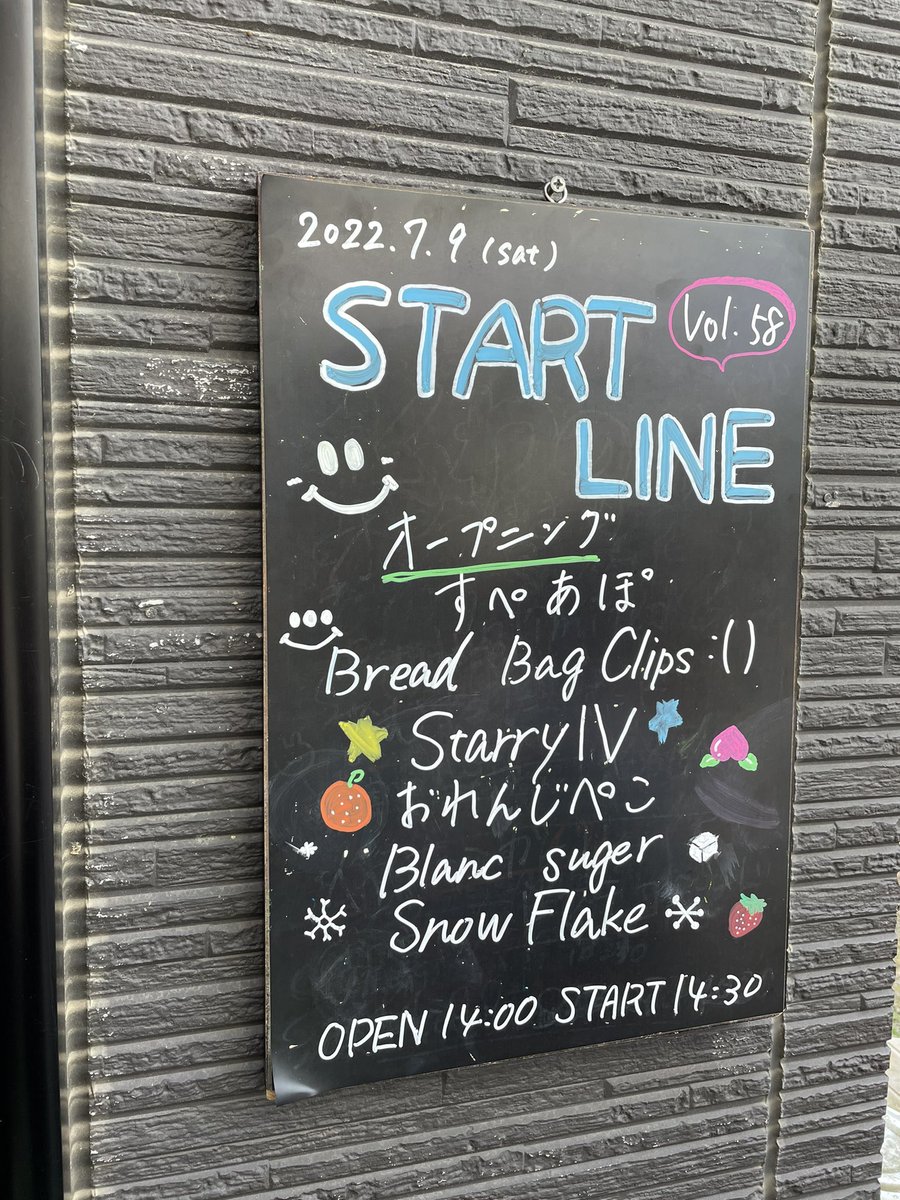 2022.7.9 (sat)
START
Vol.58
LINE
オープニング
すぺあぽ
Bread Bag Clips :()
Starry IV
おれんじぺこ
Blanc suger
Snow Flake
OPEN 14:00 START 14:30